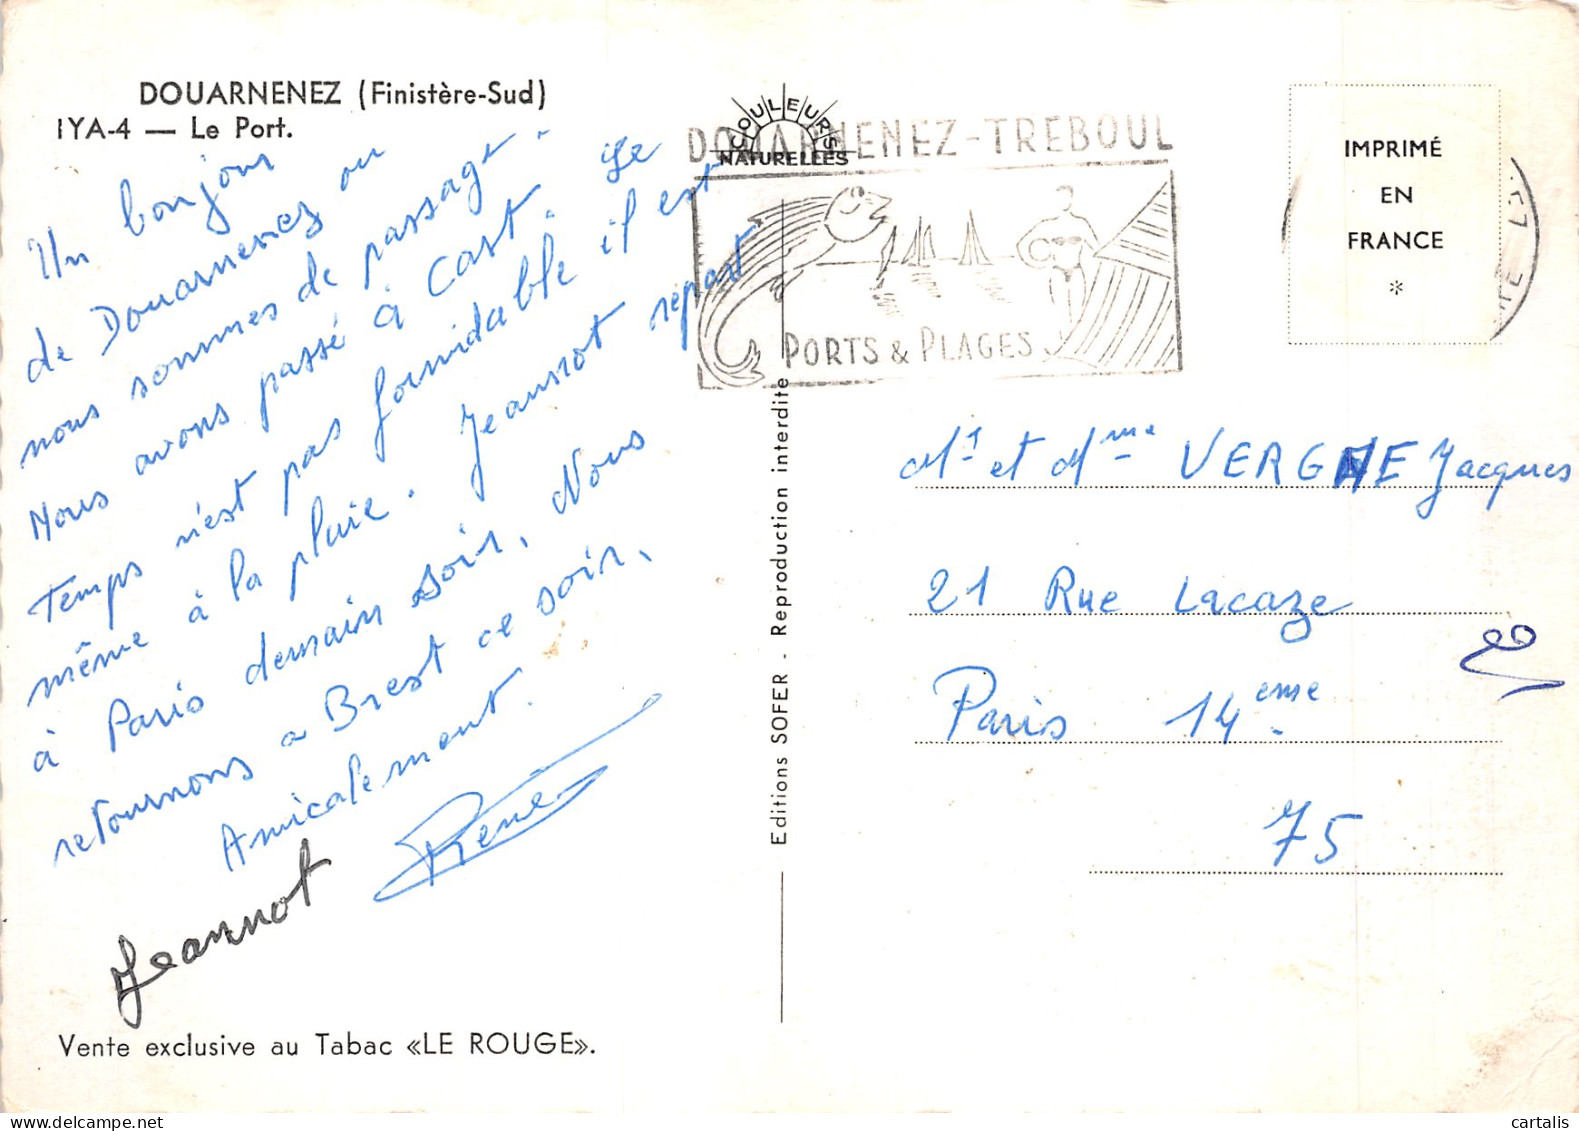 DOUARNENEZ (Finistère-Sud)
IYA-4 — Le Port.
Un bonjour
de Douarnenez ou
nous sommes de passage.
Nous avons passé à Cast. Le
Temps n'est pas formidable il est
même à la pluie. Jeannot repart
à Paris demain soir. Nous
retournons a Brest ce soir.
Amicalement.
René
Jeannot
Vente exclusive au Tabac «LE ROUGE».
COULEURS
NATURELLES
Editions SOFER - Reproduction interdite
DOUARNENEZ-TREBOUL
PORTS & PLAGES
IMPRIMÉ
EN
FRANCE
*
Mr et Mme VERGNE Jacques
21 Rue Lacaze
Paris 14eme
75
cartalis
delcampe.net